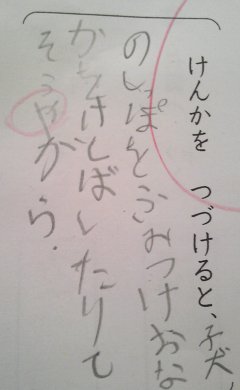 けんかを つづけると、子犬
のしっぽをふみつけおな
かをけとばしたりて
そうやから.